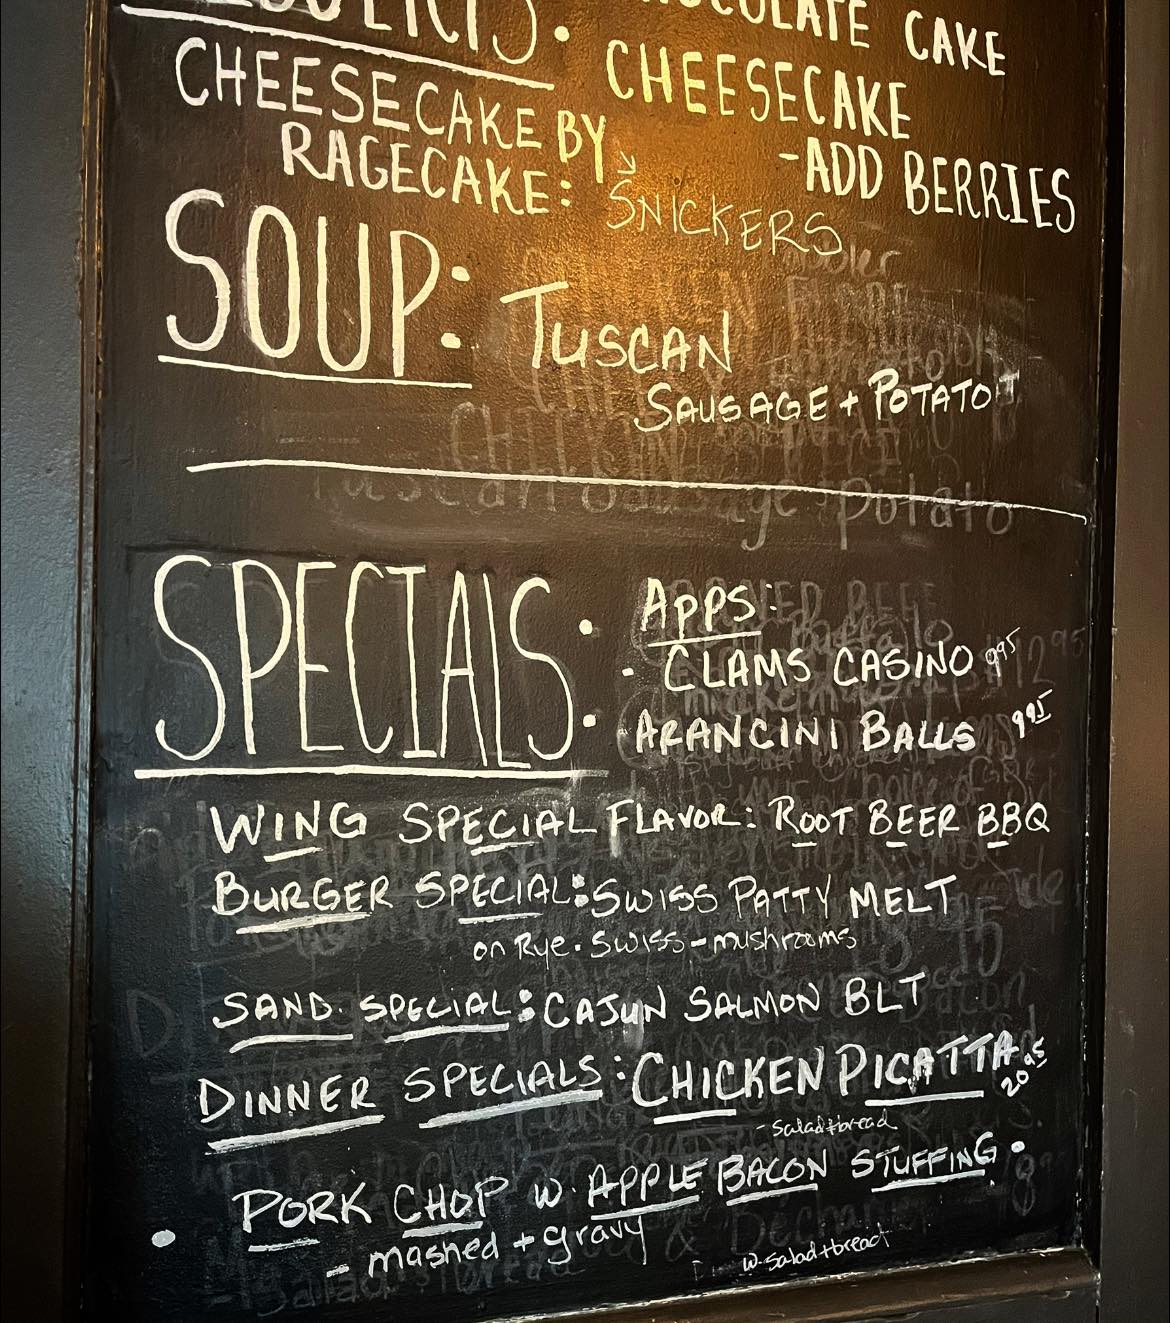 CAKE
CHEESECAKE
-ADD BERRIES
CHEESECAKE BY
RAGECAKE: SNICKERS
SOUP: TUSCAN
SAUSAGE + POTATO
Tuscan Sausage + Potato
SPECIALS:
APPS:
· CLAMS CASINO 9.95
· ARANCINI BALLS 9.95
WING SPECIAL FLAVOR: ROOT BEER BBQ
BURGER SPECIAL: SWISS PATTY MELT
on Rye · Swiss - mushrooms
SAND. SPECIAL: CAJUN SALMON BLT
DINNER SPECIALS: CHICKEN PICATTA 20.95
- salad + bread
· PORK CHOP W. APPLE BACON STUFFING ·
- mashed + gravy
w. salad + bread